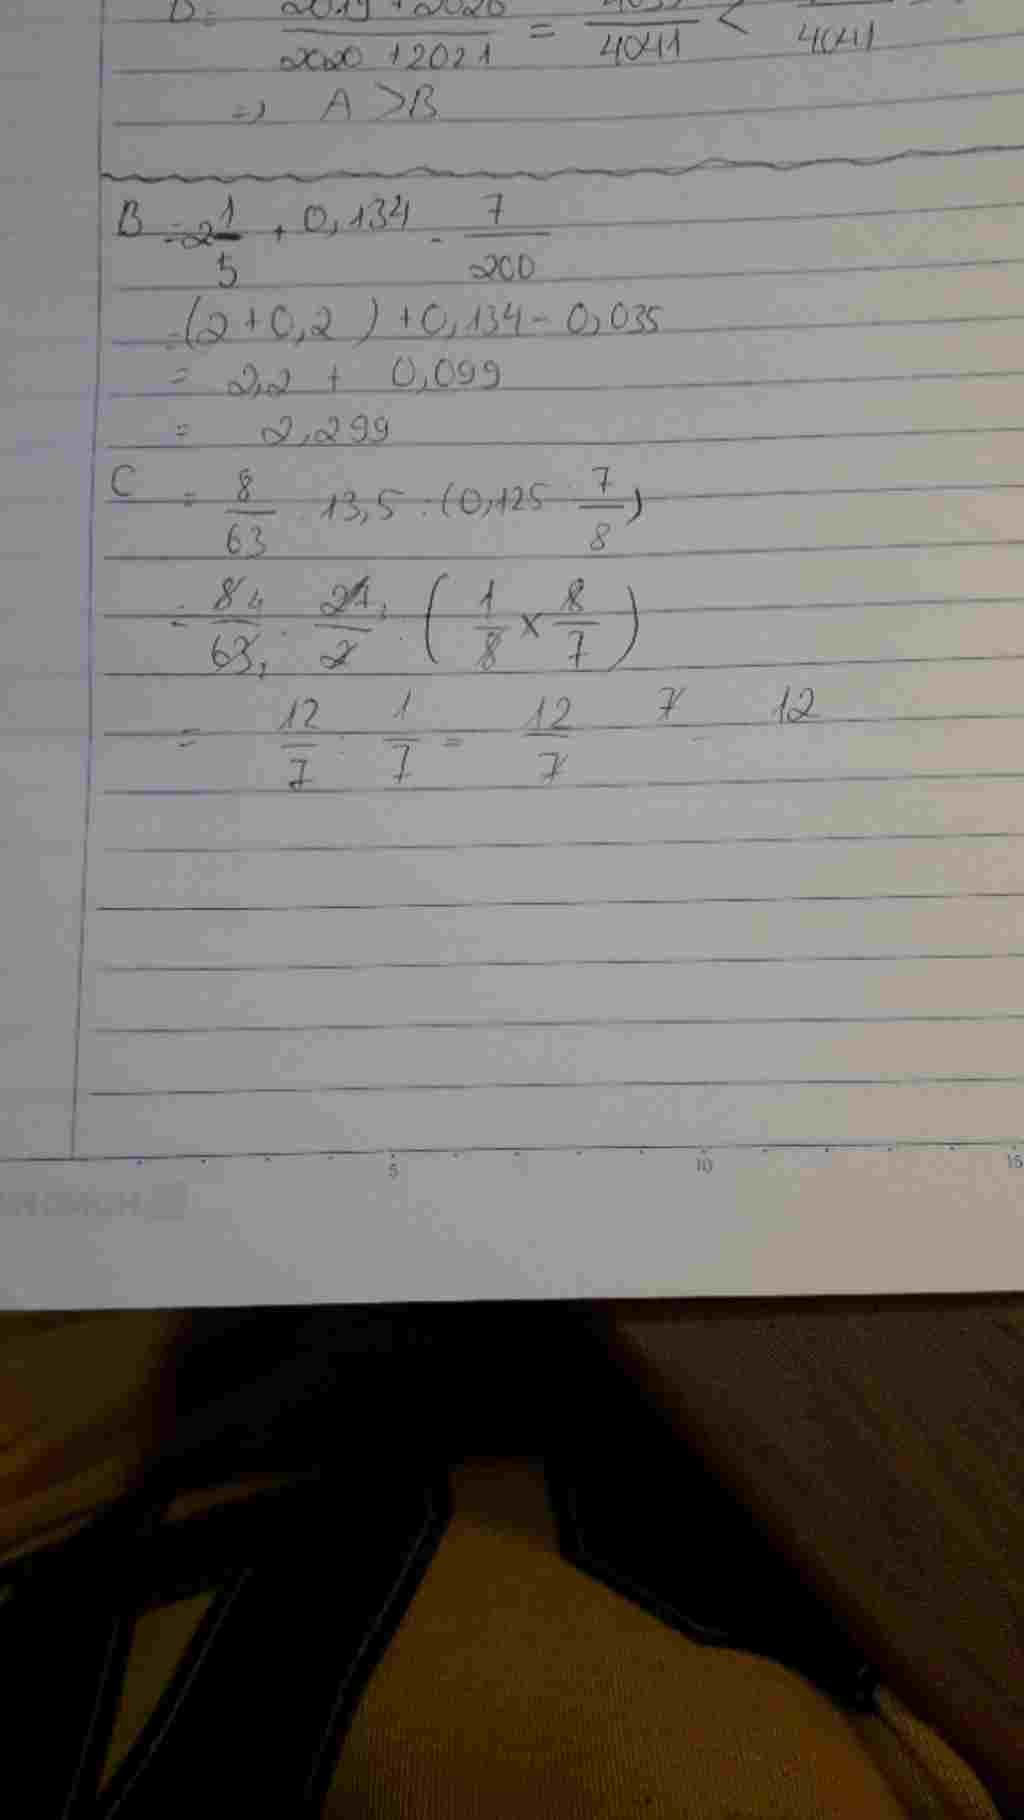 2019 + 2020 / 2020 + 2021 = / 4041 < / 4041
=> A > B
B = 2 1/5 + 0,134 - 7/200
= (2 + 0,2 ) + 0,134 - 0,035
= 2,2 + 0,099
= 2,299
C = 8/63 . 13,5 : (0,125 : 7/8)
= 84/63 . 2/2 : ( 1/8 x 8/7 )
= 12/7 : 1/7 = 12/7 7 12
5 10 15